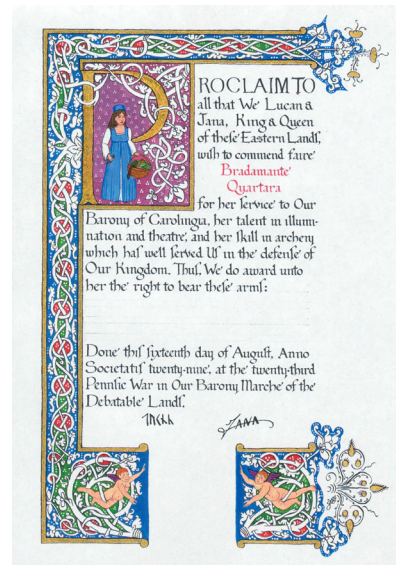 PROCLAIM TO
all that We Lucan &
Jana, King & Queen
of these Eastern Lands,
wish to commend faire
Bradamante
Quartara
for her service to Our
Barony of Carolingia, her talent in illumi-
nation and theatre, and her skill in archery
which has well served Us in the defense of
Our Kingdom. Thus, We do award unto
her the right to bear these arms:
Done this sixteenth day of August, Anno
Societatis twenty-nine, at the twenty-third
Pennsic War in Our Barony Marche of the
Debatable Lands.
JANA